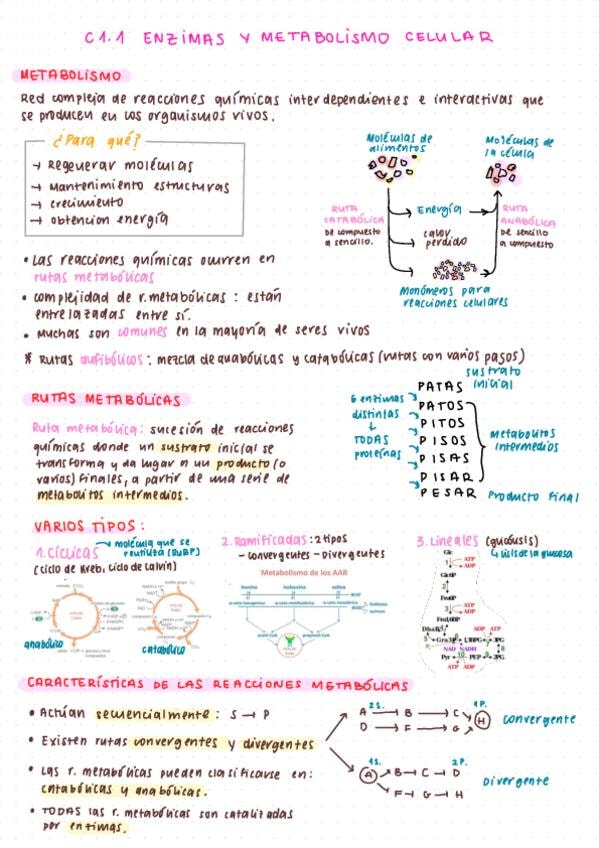 C1.1 ENZIMAS Y METABOLISMO CELULAR
METABOLISMO
Red compleja de reacciones químicas interdependientes e interactivas que
se producen en los organismos vivos.
¿Para qué?
→ Regenerar moléculas
→ Mantenimiento estructuras
→ crecimiento
→ obtención energía
Moléculas de
alimentos
Moléculas de
la célula
RUTA
CATABÓLICA
De compuesto
a sencillo.
Energía
calor
perdido
RUTA
ANABÓLICA
De sencillo
a compuesto
Monómeros para
reacciones celulares
• Las reacciones químicas ocurren en
rutas metabólicas
• complejidad de r.metabólicas: están
entrelazadas entre sí.
• Muchas son comunes en la mayoría de seres vivos
* Rutas anfibólicas: mezcla de anabólicas y catabólicas (rutas con varios pasos)
RUTAS METABÓLICAS
Ruta metabólica: sucesión de reacciones
químicas donde un sustrato inicial se
transforma y da lugar a un producto (o
varios) finales, a partir de una serie de
metabolitos intermedios.
6 enzimas
distintas
↓
TODAS
proteínas
PATAS sustrato inicial
PATOS
PITOS
PISOS
PISAS
PISAR
PESAR Producto Final
Metabolitos
intermedios
VARIOS TIPOS:
1. CÍCLICAS → molécula que se
reutiliza (RuBP)
(ciclo de Kreb, ciclo de calvin)
anabólico
catabólico
2. Ramificadas: 2 tipos
- convergentes - Divergentes
Metabolismo de los AAR
leucina isoleucina valina
3. Lineales (glucólisis)
↳ lisis de la glucosa
Glc
1 ATP
ADP
Glc6P
2
Fru6P
3 ATP
ADP
4
ADP ATP
5 6 7
NAD NADH
8
Pyr 10 PEP 9 2PG
ATP ADP
CARACTERÍSTICAS DE LAS REACCIONES METABÓLICAS
• Actúan secuencialmente: S → P
• Existen rutas convergentes y divergentes
• Las r. metabólicas pueden clasificarse en:
catabólicas y anabólicas.
• TODAS las r. metabólicas son catalizadas
por enzimas.
2S. 1P.
A → B → C
D → F → G
H
convergente
1S. 2P.
A
B → C → D
F → G → H
Divergente